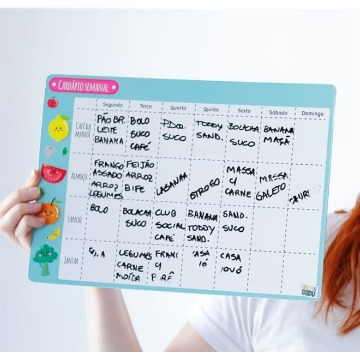 CARDÁPIO SEMANAL
Segunda Terça Quarta Quinta Sexta Sábado Domingo
CAFÉ DA MANHÃ
PÃO BR. LEITE BANANA
BOLO SUCO CAFÉ
SUCO
TODDY SAND.
BOLACHA SUCO
BANANA MAÇÃ
ALMOÇO
FRANGO ASSADO ARROZ LEGUMES
FEIJÃO ARROZ BIFE
LASANHA
STROGO
MASSA C/ CARNE
MASSA GALETO
LANCHE
BOLO
BOLACHA SUCO
CLUB SOCIAL CAFÉ
BANANA TODDY SAND.
SAND. SUCO
JANTAR
LEGUMES CARNE MOÍDA
FRANG
CASA